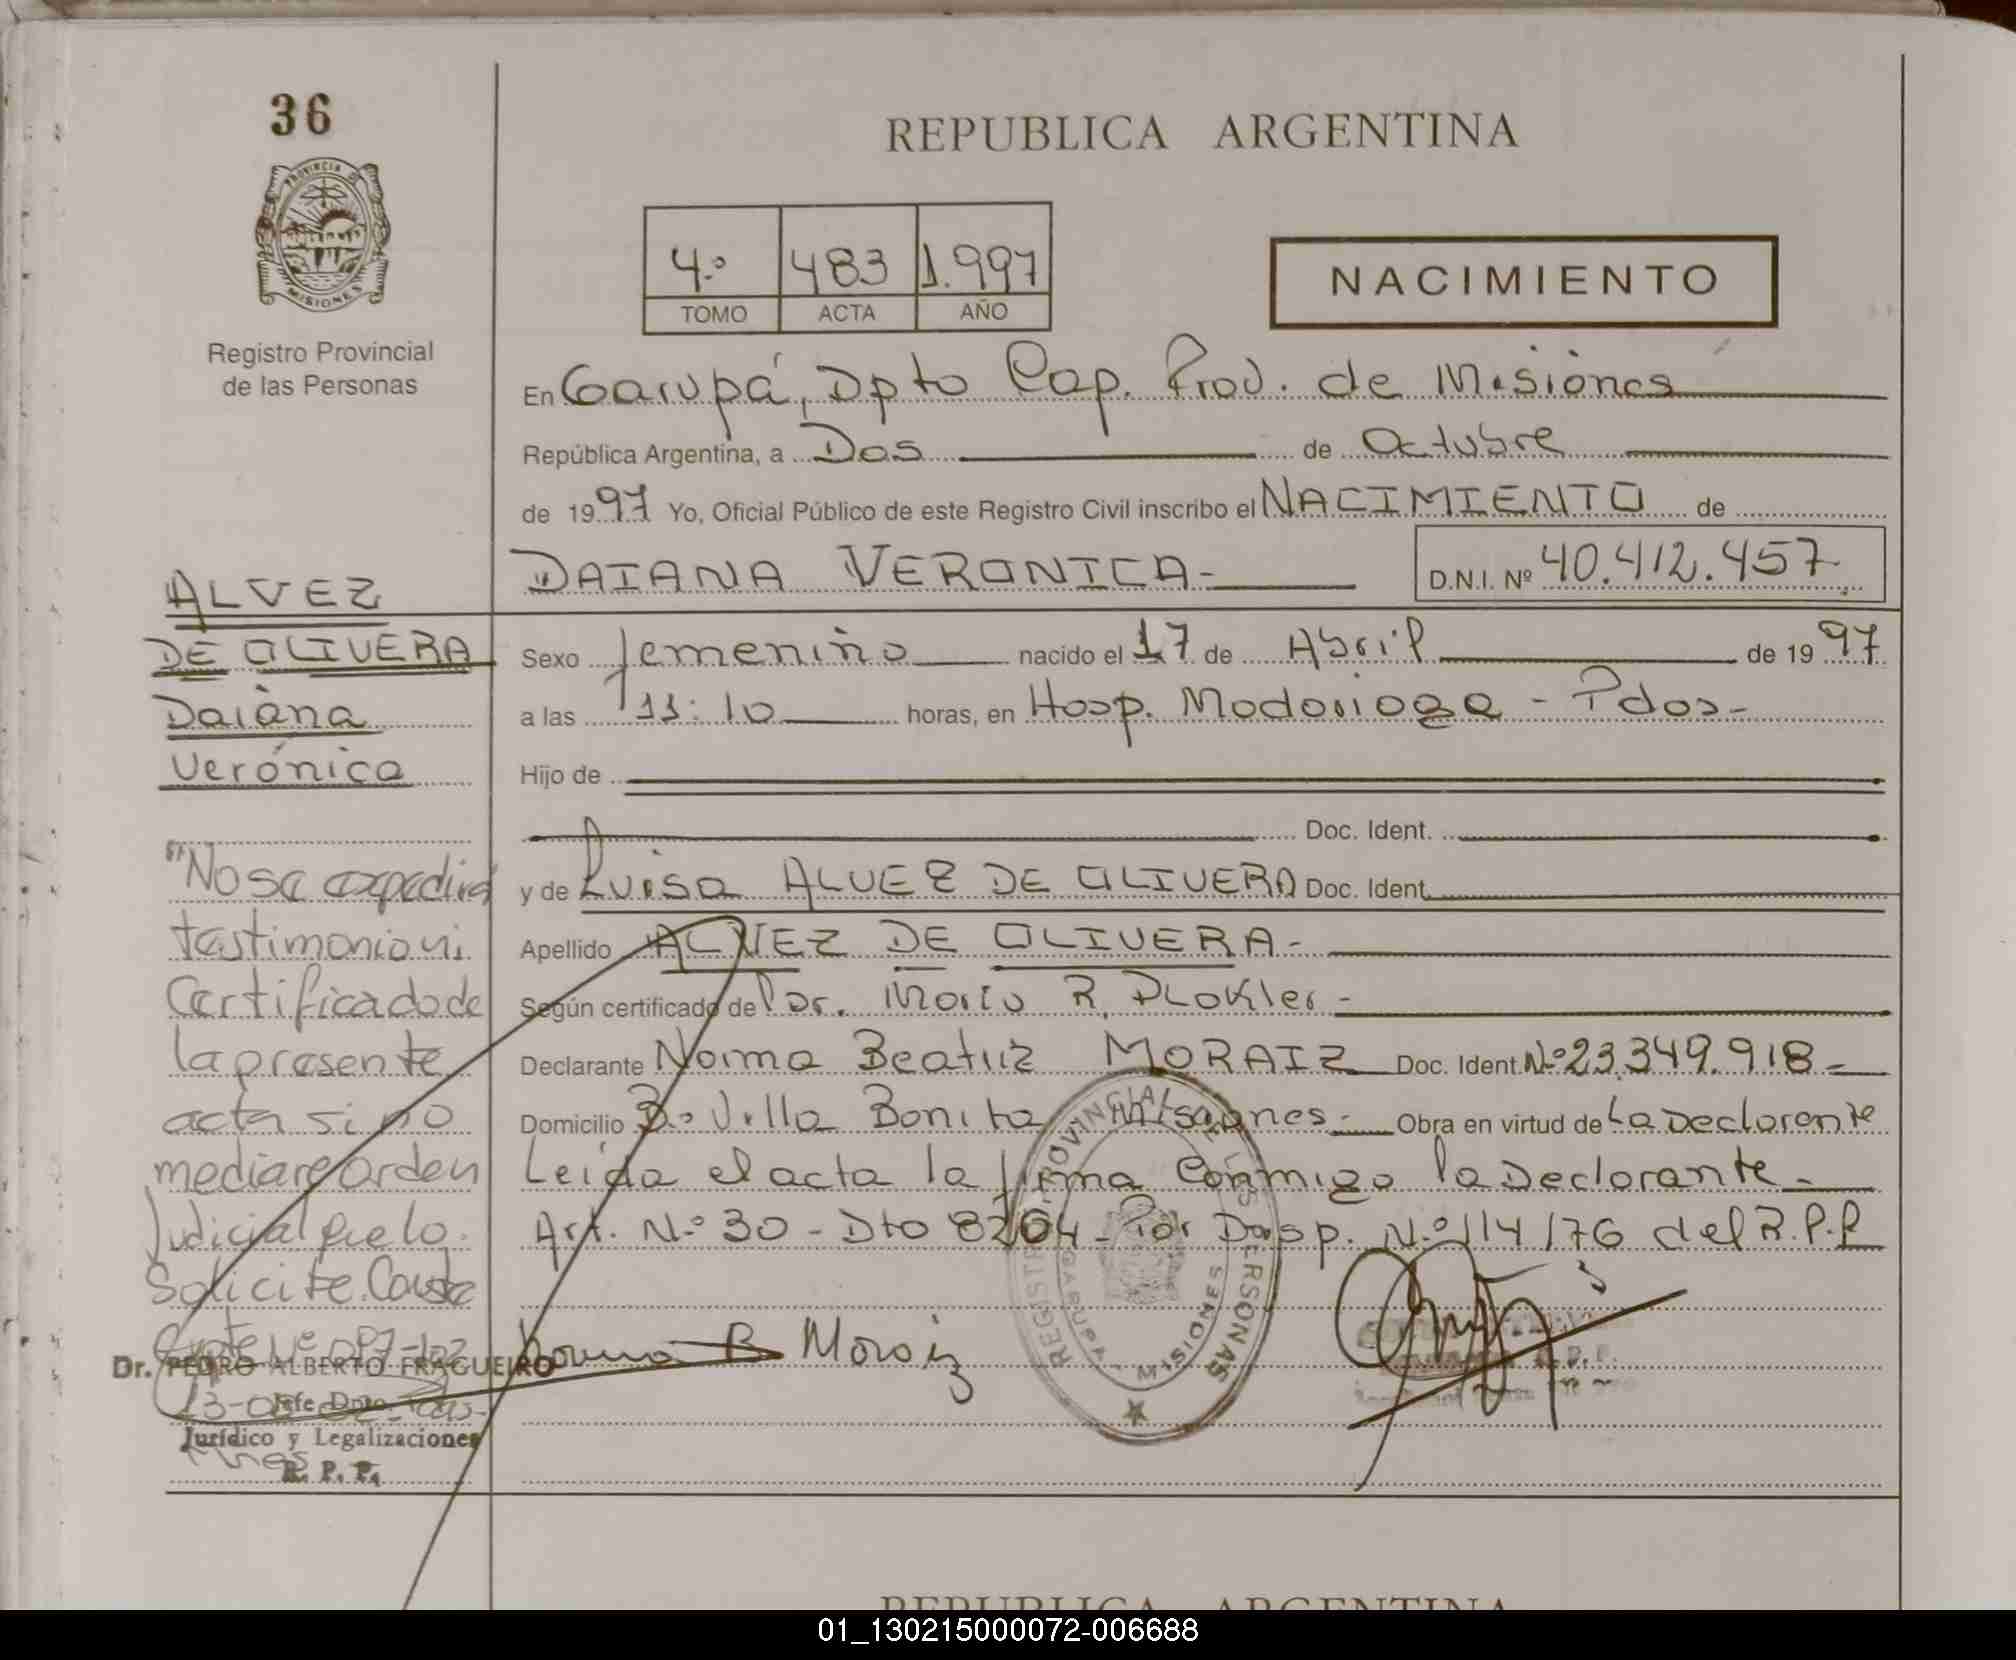 36
PROVINCIA DE
MISIONES
Registro Provincial
de las Personas
REPUBLICA ARGENTINA
4.º 483 1.997
TOMO ACTA AÑO
NACIMIENTO
En Garupá, Dpto Cap. Prov. de Misiones
República Argentina, a Dos de Octubre
de 1997 Yo, Oficial Público de este Registro Civil inscribo el NACIMIENTO de
DAIANA VERONICA- D.N.I. Nº 40.412.457
Sexo femenino nacido el 17 de Abril de 1997
a las 11:10 horas, en Hosp. Madariaga - Pdas-
Hijo de
Doc. Ident.
y de Luisa ALVEZ DE OLIVERA Doc. Ident.
Apellido ALVEZ DE OLIVERA-
Según certificado de Dr. Mario R.
Declarante Norma Beatriz MORAIZ Doc. Ident. Nº 23.349.918-
Domicilio Bº Villa Bonita Misiones- Obra en virtud de La Declarante
Leída el acta la firma Conmigo la Declarante-
Art. Nº 30 - Dto 8204- Por Dosp. Nº 114/76 del R.P.P
Norma B Moraiz
REGISTRO PROVINCIAL DE LAS PERSONAS
GARUPA
MISIONES
ALVEZ
DE OLIVERA
Daiana
Verónica
"No se expedirá
testimonio ni
Certificado de
la presente
acta si no
mediare orden
Judicial que lo
Solicite. Conste
Expte Nº
Dr. PEDRO ALBERTO FRAGUEIRO
Jefe Dpto.
Jurídico y Legalizaciones
R. P. P.
REPUBLICA ARGENTINA
01_130215000072-006688